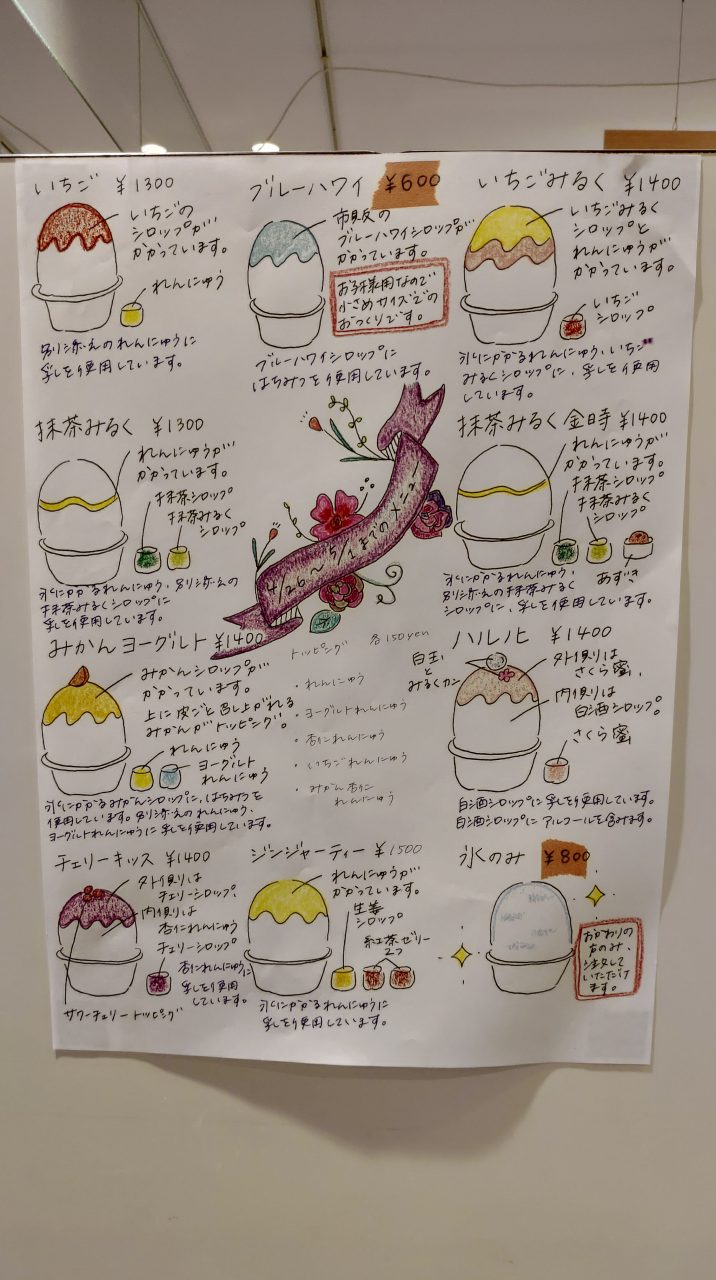 いちご ¥1300
いちごの
シロップが
かかっています。
れんにゅう
別添えのれんにゅうに
乳を使用しています。
ブルーハワイ ¥600
市販の
ブルーハワイシロップが
かかっています。
お子様用なので
小さめサイズでの
おつくりです。
ブルーハワイシロップに
はちみつを使用しています。
いちごみるく ¥1400
いちごみるく
シロップと
れんにゅうが
かかっています。
いちご
シロップ
氷にかかるれんにゅう、いちご
みるくシロップに、乳を使用
しています。
抹茶みるく ¥1300
れんにゅうが
かかっています。
抹茶シロップ
抹茶みるく
シロップ
氷にかかるれんにゅう、別添えの
抹茶みるくシロップに
乳を使用しています。
4/26〜5/1までのメニュー
抹茶みるく金時 ¥1400
れんにゅうが
かかっています。
抹茶シロップ
抹茶みるく
シロップ
あずき
氷にかかるれんにゅう、
別添えの抹茶みるく
シロップに、乳を使用しています。
みかんヨーグルト ¥1400
みかんシロップが
かかっています。
上に皮ごと色上がれる
みかんがトッピング。
れんにゅう
ヨーグルト
れんにゅう
氷にかかるみかんシロップに、はちみつを
使用しています。別添えのれんにゅう、
ヨーグルトれんにゅうに乳を使用しています。
トッピング 各150yen
・れんにゅう
・ヨーグルトれんにゅう
・杏仁れんにゅう
・いちごれんにゅう
・みかん杏仁
れんにゅう
ハルノヒ ¥1400
白玉
と
みるくカン
外側は
さくら蜜、
内側は
白酒シロップ。
さくら蜜
白酒シロップに乳を使用しています。
白酒シロップにアルコールを含みます。
チェリーキッス ¥1400
外側は
チェリーシロップ、
内側は
杏仁れんにゅう
チェリーシロップ
杏仁れんにゅうに
乳を使用
しています。
サワーチェリートッピング
ジンジャーティー ¥1500
れんにゅうが
かかっています。
生姜
シロップ
紅茶ゼリー
2つ
氷にかかるれんにゅうに
乳を使用しています。
氷のみ ¥800
おかわりの
方のみ、
注文して
いただけ
ます。